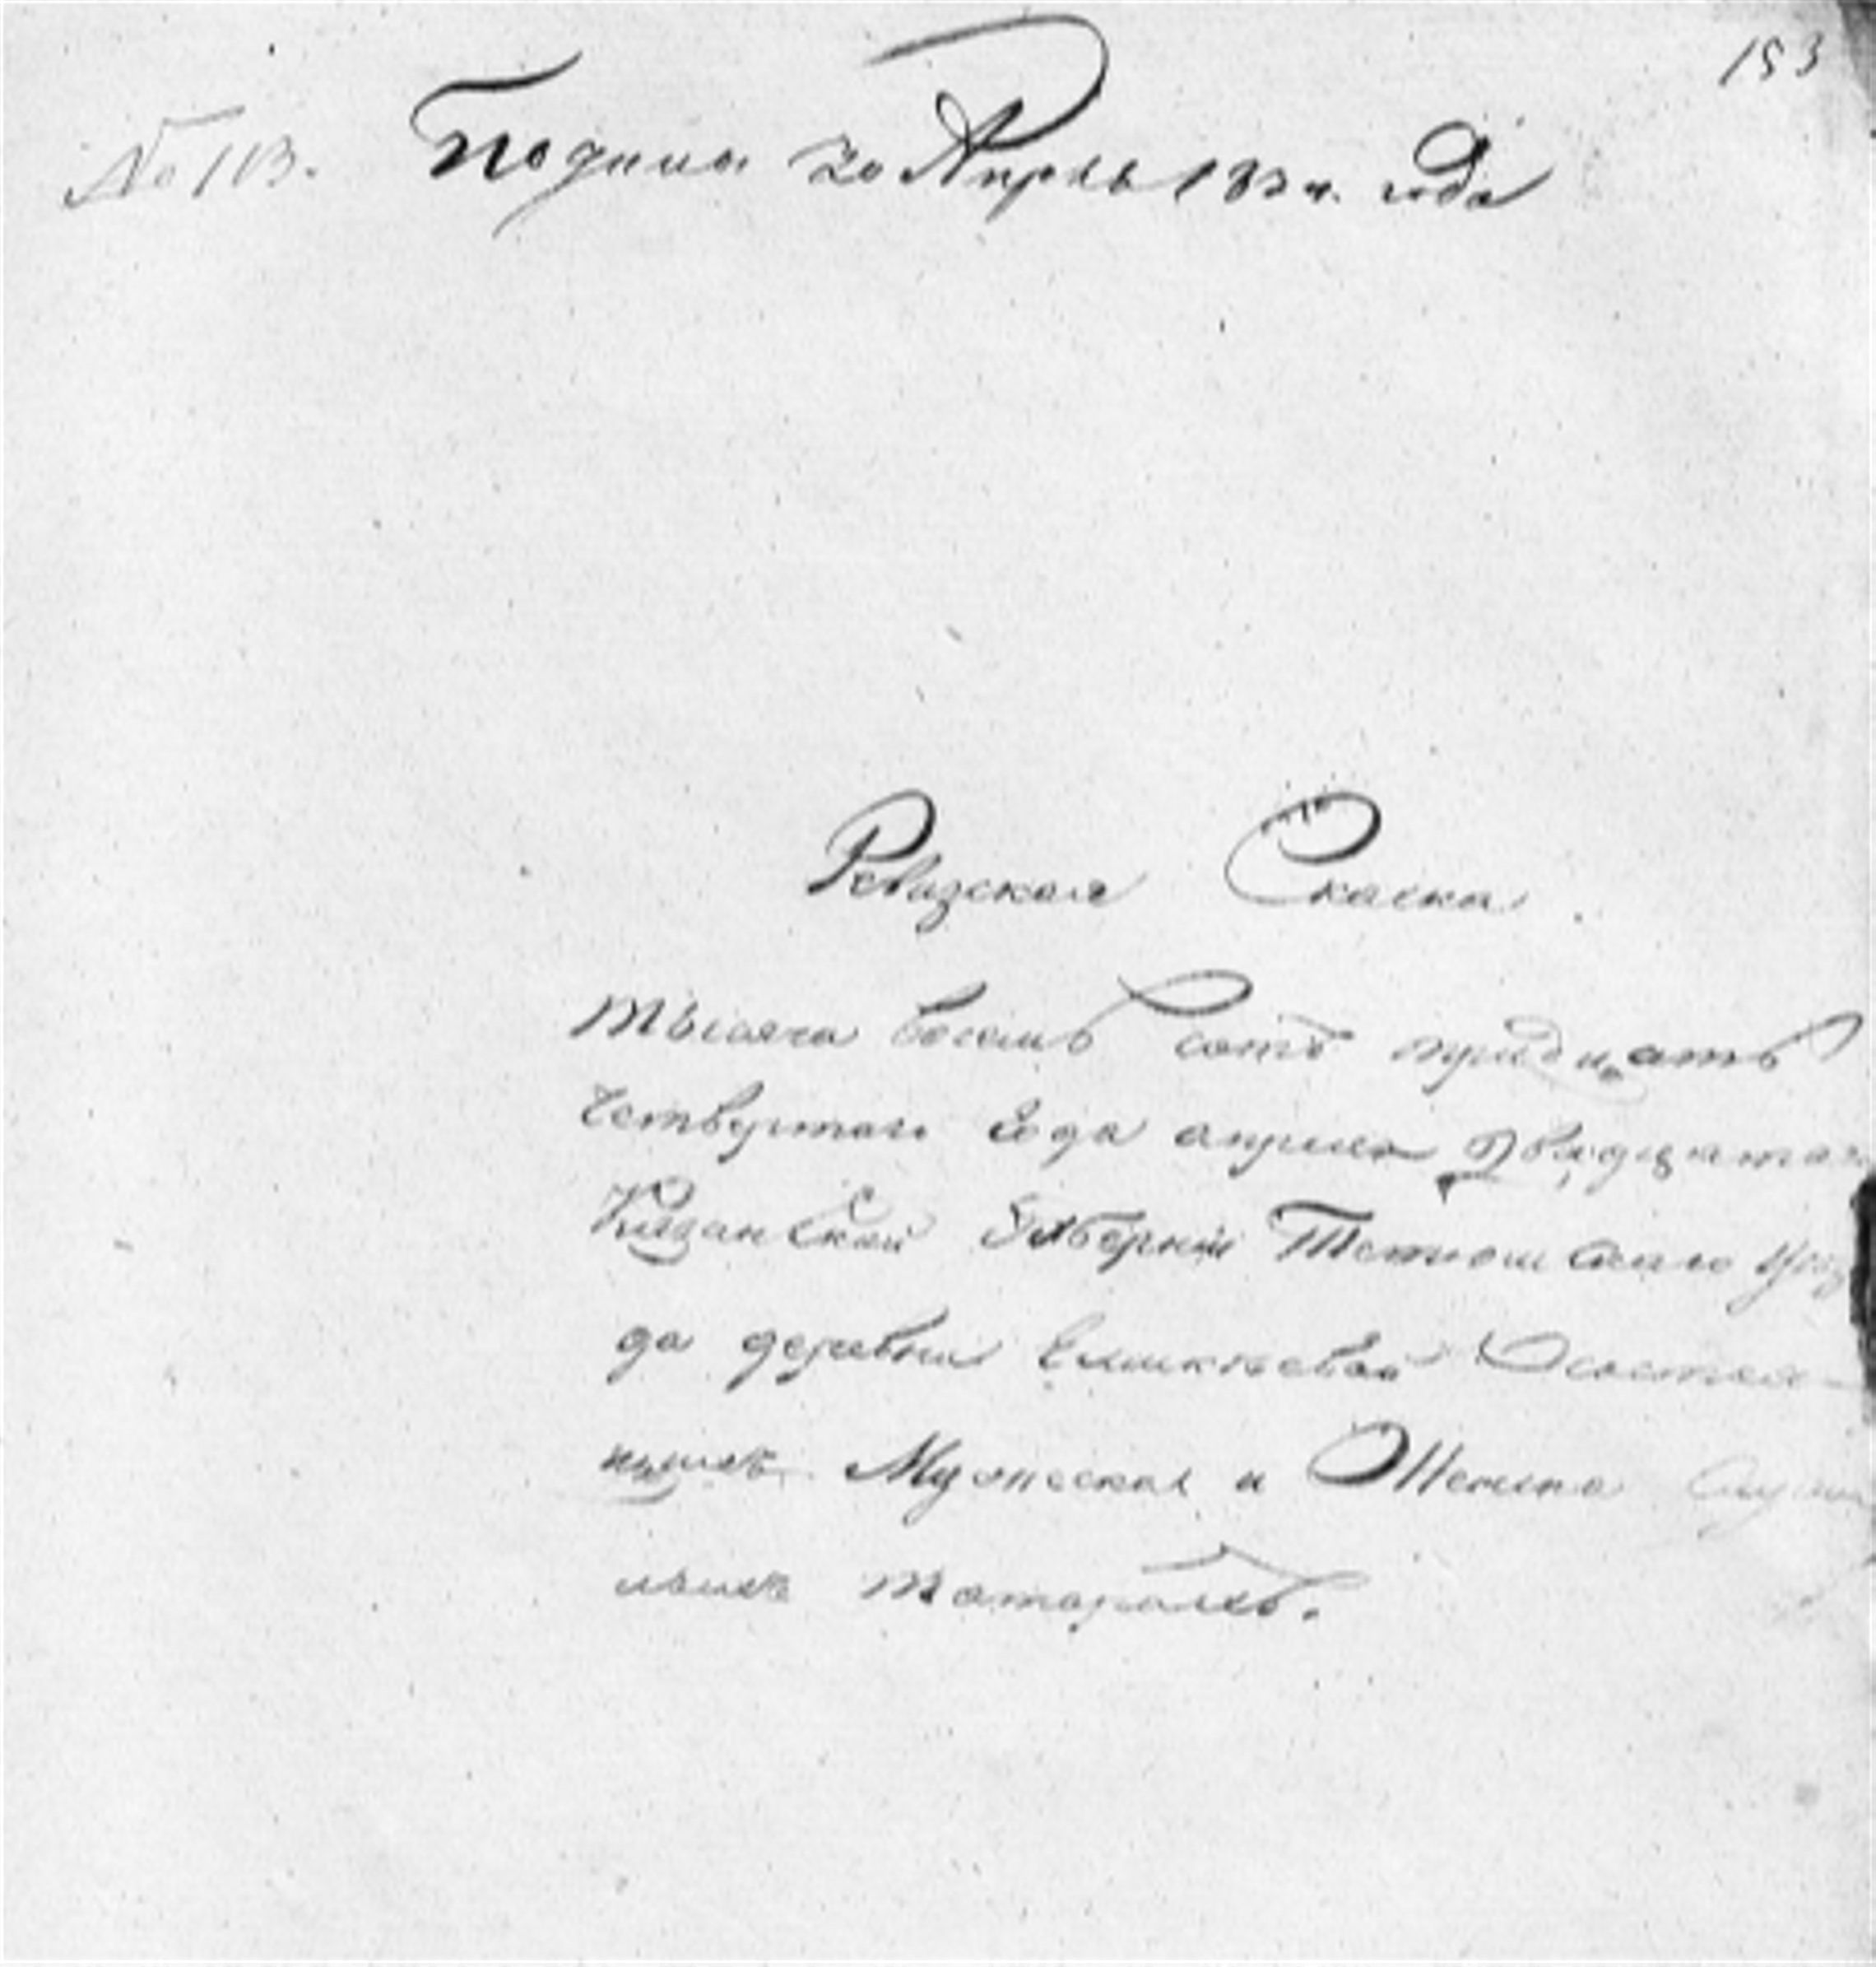 153
№ 113. Подана 20 Апреля 1834. года
Ревизская Скаска
тысяча восемь сотъ тридцать
четвертаго года апреля двадцатаго
Казанской Губернии Тетюшскаго уез
да деревни состоя
мужеска и женска
татарахъ.